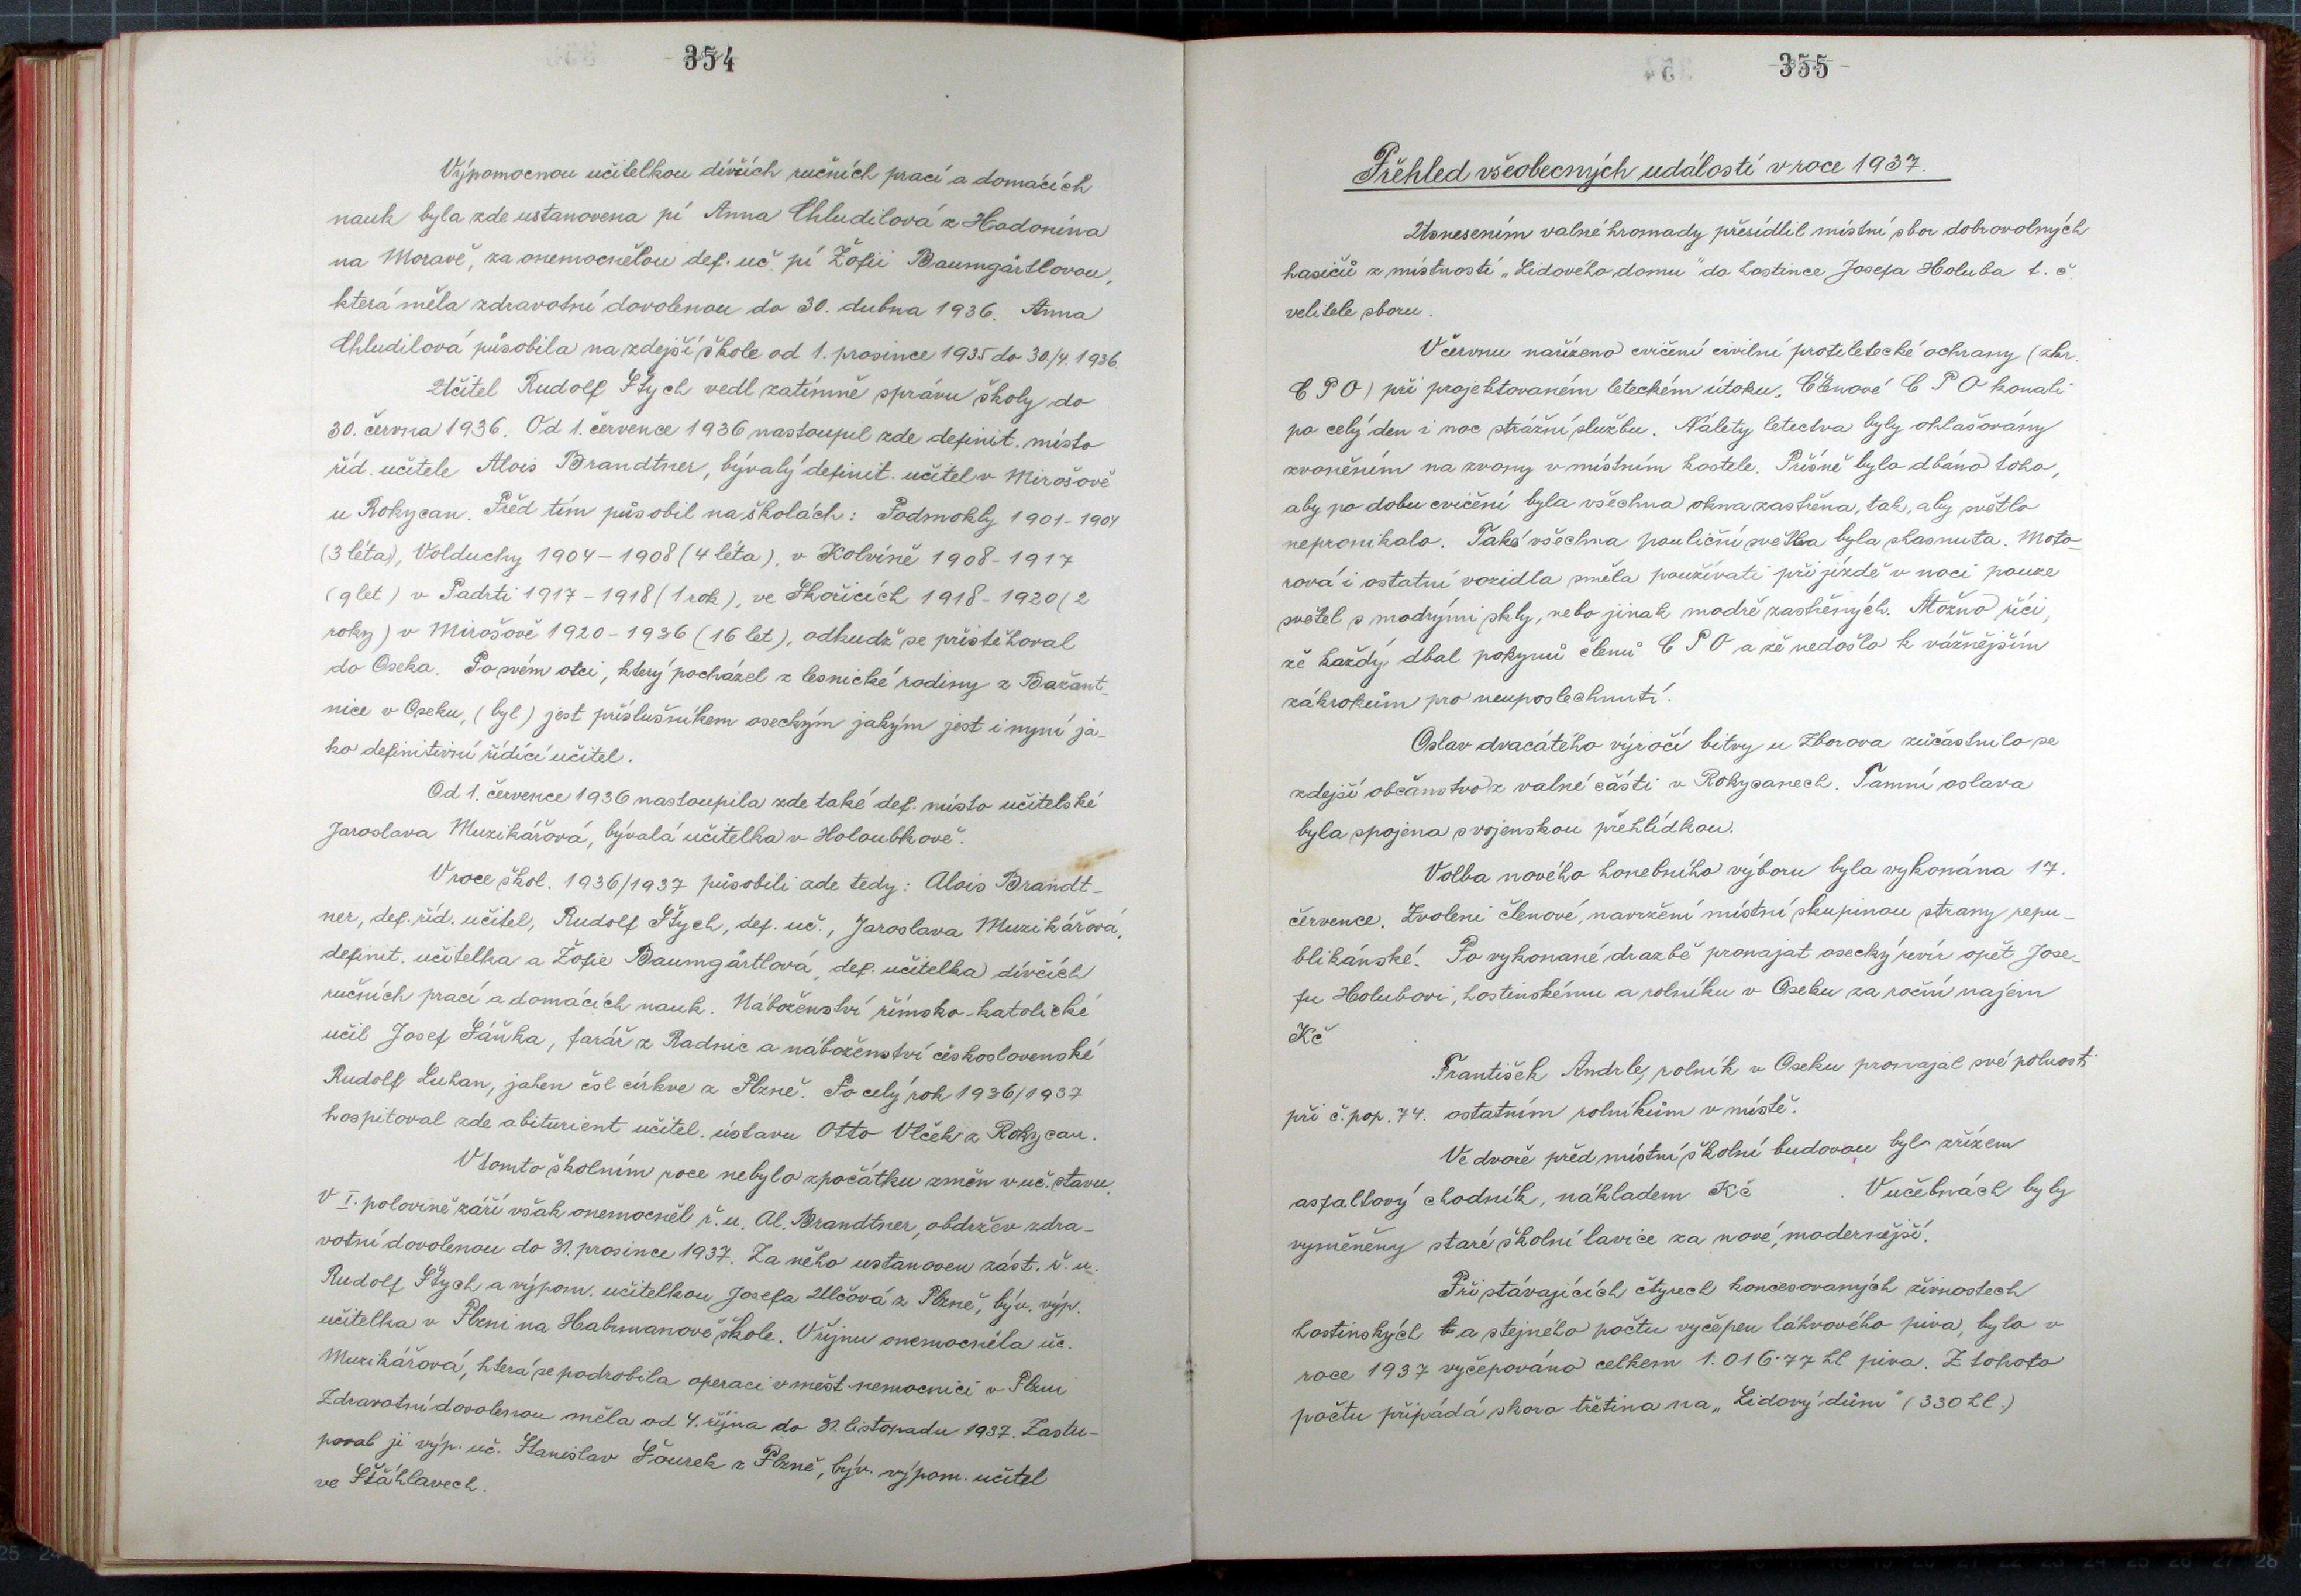 354
Výpomocnou učitelkou dívčích ručních prací a domácích
nauk byla zde ustanovena pí Anna Chludilová z Hodonína
na Moravě, za onemocnělou def. uč. pí Žofii Baumgärtlovou,
která měla zdravotní dovolenou do 30. dubna 1936. Anna
Chludilová působila na zdejší škole od 1. prosince 1935 do 30./4. 1936.
Učitel Rudolf Štych vedl zatímně správu školy do
30. června 1936. Od 1. července 1936 nastoupil zde definit. místo
říd. učitele Alois Brandtner, bývalý definit. učitel v Mirošově
u Rokycan. Před tím působil na školách: Podmokly 1901-1904
(3 léta), Volduchy 1904-1908 (4 léta), v Kolvíně 1908-1917
(9 let) v Padrti 1917-1918 (1 rok), ve Skořicích 1918-1920 (2
roky) v Mirošově 1920-1936 (16 let), odkudž se přistěhoval
do Oseka. Po svém otci, který pocházel z lesnické rodiny z Bažant-
nice v Oseku, (byl) jest příslušníkem oseckým jakým jest i nyní ja-
ko definitivní řídící učitel.
Od 1. července 1936 nastoupila zde také def. místo učitelské
Jaroslava Muzikářová, bývalá učitelka v Holoubkově.
V roce škol. 1936/1937 působili zde tedy: Alois Brandt-
ner, def. říd. učitel, Rudolf Štych, def. uč., Jaroslava Muzikářová,
definit. učitelka a Žofie Baumgärtlová, def. učitelka dívčích
ručních prací a domácích nauk. Náboženství římsko-katolické
učil Josef Šáňka, farář z Radnic a náboženství československé
Rudolf Luhan, jahen čsl církve z Plzně. Po celý rok 1936/1937
hospitoval zde abiturient učitel. ústavu Otto Vlček z Rokycan.
V tomto školním roce nebylo zpočátku změn v uč. stavu.
V I. polovině září však onemocněl ř. u. Al. Brandtner, obdržev zdra-
votní dovolenou do 31. prosince 1937. Za něho ustanoven zást. ř. u.
Rudolf Štych a výpom. učitelkou Josefa Ulčová z Plzně, býv. výp.
učitelka v Plzni na Habrmanově škole. V říjnu onemocněla uč.
Muzikářová, která se podrobila operaci v měst. nemocnici v Plzni
Zdravotní dovolenou měla od 4. října do 31. listopadu 1937. Zastu-
poval ji výp. uč. Stanislav Šourek z Plzně, býv. výpom. učitel
ve Šťáhlavech.
355
Přehled všeobecných událostí v roce 1937.
Usnesením valné hromady přesídlil místní sbor dobrovolných
hasičů z místností „Lidového domu" do hostince Josefa Holuba t. č.
velitele sboru.
V červnu nařízeno cvičení civilní protiletecké ochrany (zkr.
C P O) při projektovaném leteckém útoku. Členové C P O konali
po celý den i noc strážní službu. Nálety letectva byly ohlašovány
zvoněním na zvony v místním kostele. Přísně bylo dbáno toho,
aby po dobu cvičení byla všechna okna zastřena, tak, aby světlo
nepronikalo. Také všechna pouliční světla byla shasnuta. Moto-
rová i ostatní vozidla směla používati při jízdě v noci pouze
světel s modrými skly, nebo jinak modře zastřených. Možno říci,
že každý dbal pokynů členů C P O a že nedošlo k vážnějším
zákrokům pro neuposlechnutí.
Oslav dvacátého výročí bitvy u Zborova zúčastnilo se
zdejší občanstvo z valné části v Rokycanech. Tamní oslava
byla spojena s vojenskou přehlídkou.
Volba nového honebního výboru byla vykonána 17.
července. Zvoleni členové, navržení místní skupinou strany repu-
blikánské. Po vykonané dražbě pronajat osecký revír opět Jose-
fu Holubovi, hostinskému a rolníku v Oseku za roční nájem
Kč .
František Andrle, rolník v Oseku pronajal své polnosti
při č. pop. 74. ostatním rolníkům v místě.
Ve dvoře před místní školní budovou byl zřízen
asfaltový chodník, nákladem Kč . V učebnách byly
vyměněny staré školní lavice za nové, modernější.
Při stávajících čtyrech koncesovaných živnostech
hostinských a stejného počtu výčepen láhvového piva, bylo v
roce 1937 vyčepováno celkem 1.016·77 hl piva. Z tohoto
počtu připadá skoro třetina na „Lidový dům" (330 hl.)